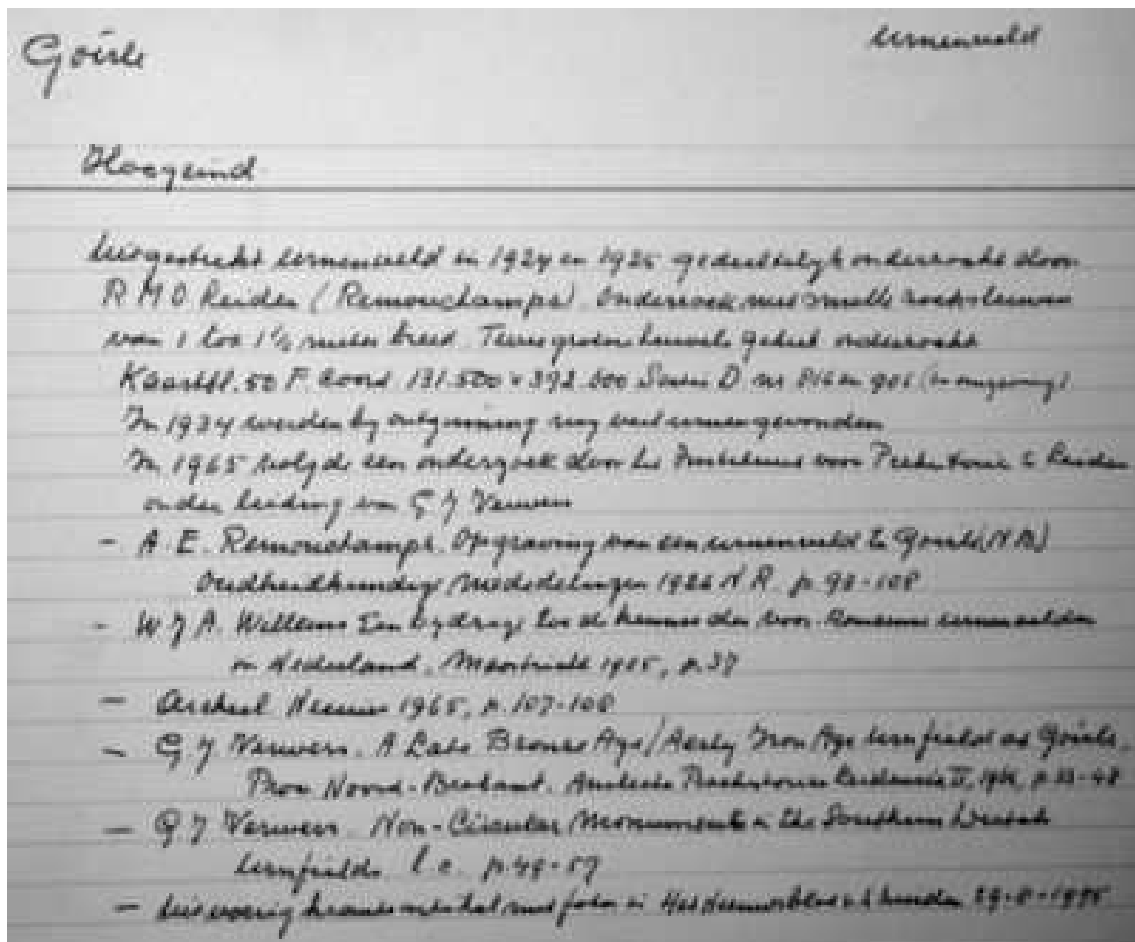 Goirle
Urnenveld
Hoogeind
Uitgestrekt urnenveld in 1924 en 1925 gedeeltelijk onderzocht door
R.M.O. Leiden (Remouchamps). Onderzoek met smalle zoeksleuven
van 1 tot 1½ meter breed. Terreingrote heuvels geheel onderzocht
Kaartbl. 50 F. Coord. 131.500 × 392.000 Sectie D nr 816 en 901 (en omgeving)
In 1934 werden bij ontginning nog veel urnen gevonden
In 1965 volgde een onderzoek door het Instituut voor Prehistorie te Leiden
onder leiding van G J Verwers
- A. E. Remouchamps. Opgraving van een urnenveld te Goirle (N.B.)
Oudheidkundige Mededelingen 1926 N.R. p. 98-108
- W J A. Willems Een bydrage tot de kennis der voor-Romeinse urnenvelden
in Nederland. Maastricht 1935, p. 37
- Archeol Nieuws 1965, p. 107-108
- G J Verwers. A Late Bronze Age/Early Iron Age Urnfield at Goirle,
Prov Noord-Brabant. Analecta Praehistorica Leidensia II, p. 33-48
- G J Verwers. Non-Circular Monuments in the Southern Dutch
Urnfields l.c. p. 49-57
- Uitvoerig krante met foto in Het Nieuwsblad v h Zuiden